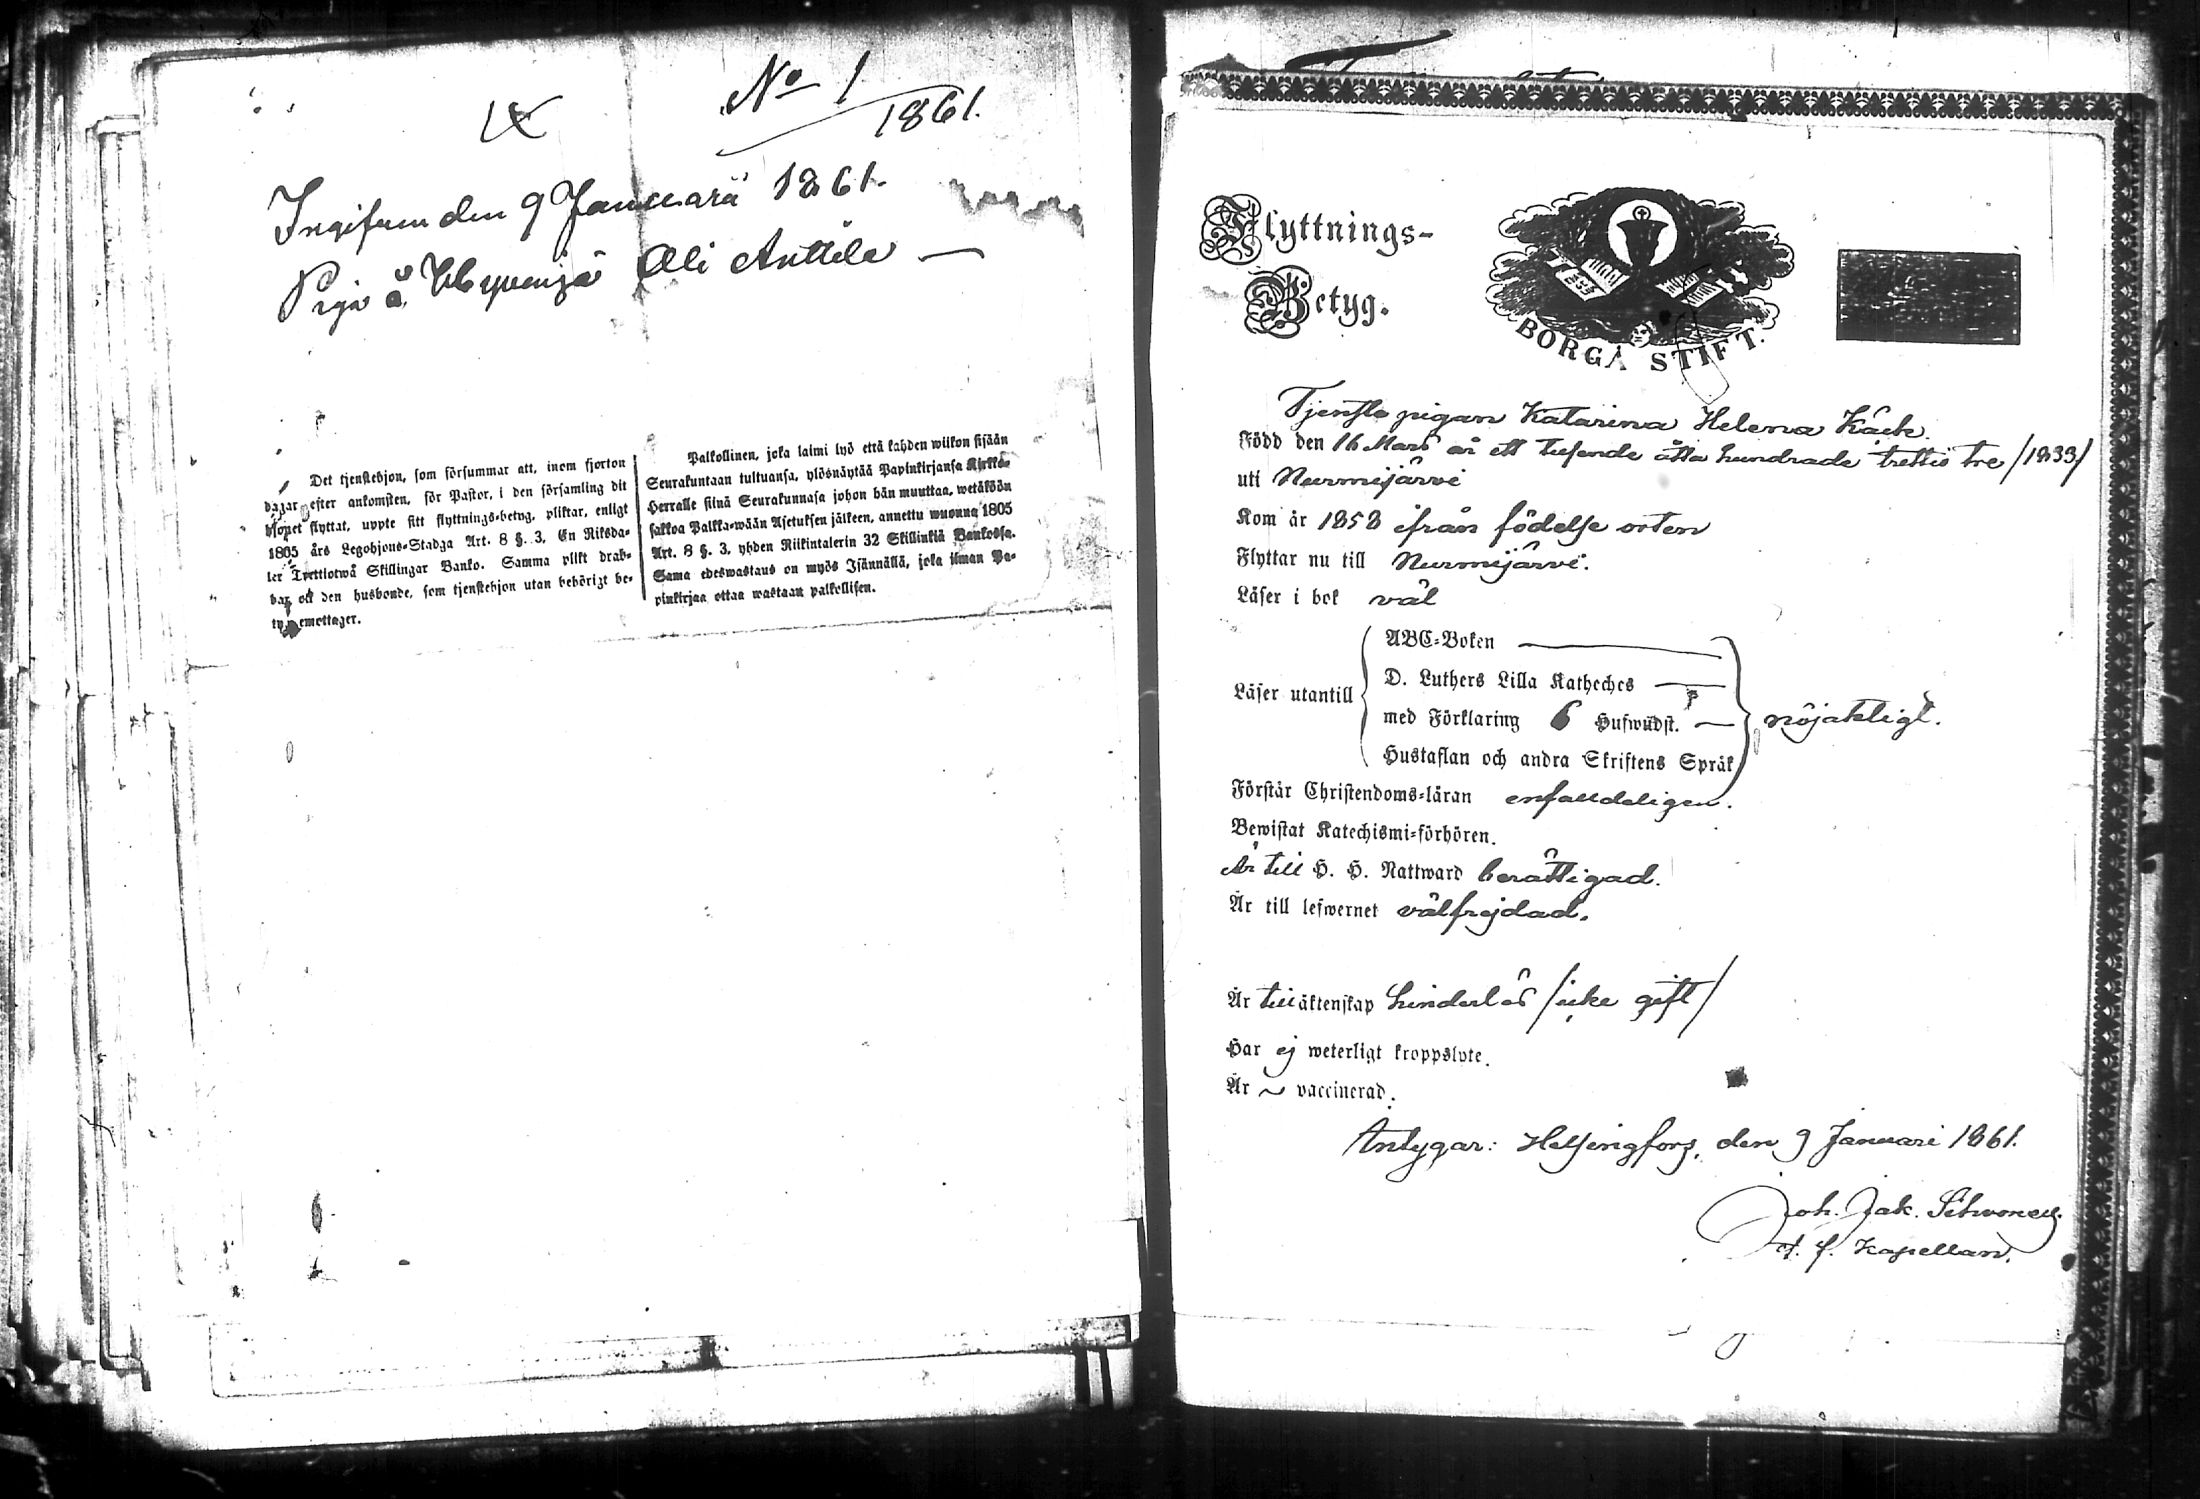 No 1
1861.
Ingifven den 9 Januari 1861.
Piga å Ali Anttila
Det tjenstehjon, som försummar att, inom fjorton
dagar efter ankomsten, för Pastor, i den församling dit
hjonet flyttat, uppte sitt flyttnings-betyg, pliktar, enligt
1805 års Legohjons-Stadga Art. 8 §. 3, En Riksda-
ler Trettiotwå Skillingar Banko. Samma plikt drab-
bar ock den husbonde, som tjenstehjon utan behörigt be-
tyg emottager.
Palkollinen, joka laimi lyö että kahden wiikon sisään
Seurakuntaan tultuansa, ylösnäytää Papinkirjansa Kirkko-
Herralle siinä Seurakunnasa johon hän muuttaa, wetäköön
sakkoa Palkka-wään Asetuksen jälkeen, annettu wuonna 1805
Art. 8 §. 3, yhden Riikintalerin 32 Skillinkiä Bankossa.
Sama edeswastaus on myös Isännällä, joka ilman Pa-
pinkirjaa ottaa wastaan palkollisen.
Flyttnings-
Betyg.
BORGÅ STIFT.
Tjenste pigan Katarina Helena Käck.
Född den 16 Mars år ett tusende åtta hundrade trettio tre /1833/
uti Nurmijärvi
Kom år 1858 ifrån födelse orten
Flyttar nu till Nurmijärvi.
Läser i bok väl
ABC-Boken
D. Luthers Lilla Katheches
Läser utantill
med Förklaring 6 Hufwudst.
nöjaktligt.
Hustaflan och andra Skriftens Språk
Förstår Christendoms-läran enfalldeligen.
Bewistat Katechismi-förhören.
Är till H. H. Nattward berättigad.
Är till lefwernet välfrejdad.
Är till äktenskap hinderlös /icke gift/
Har ej weterligt kroppslyte.
Är vaccinerad.
Antygar: Helsingfors, den 9 Januari 1861.
Joh. Jak.
t. f. Kapellan.